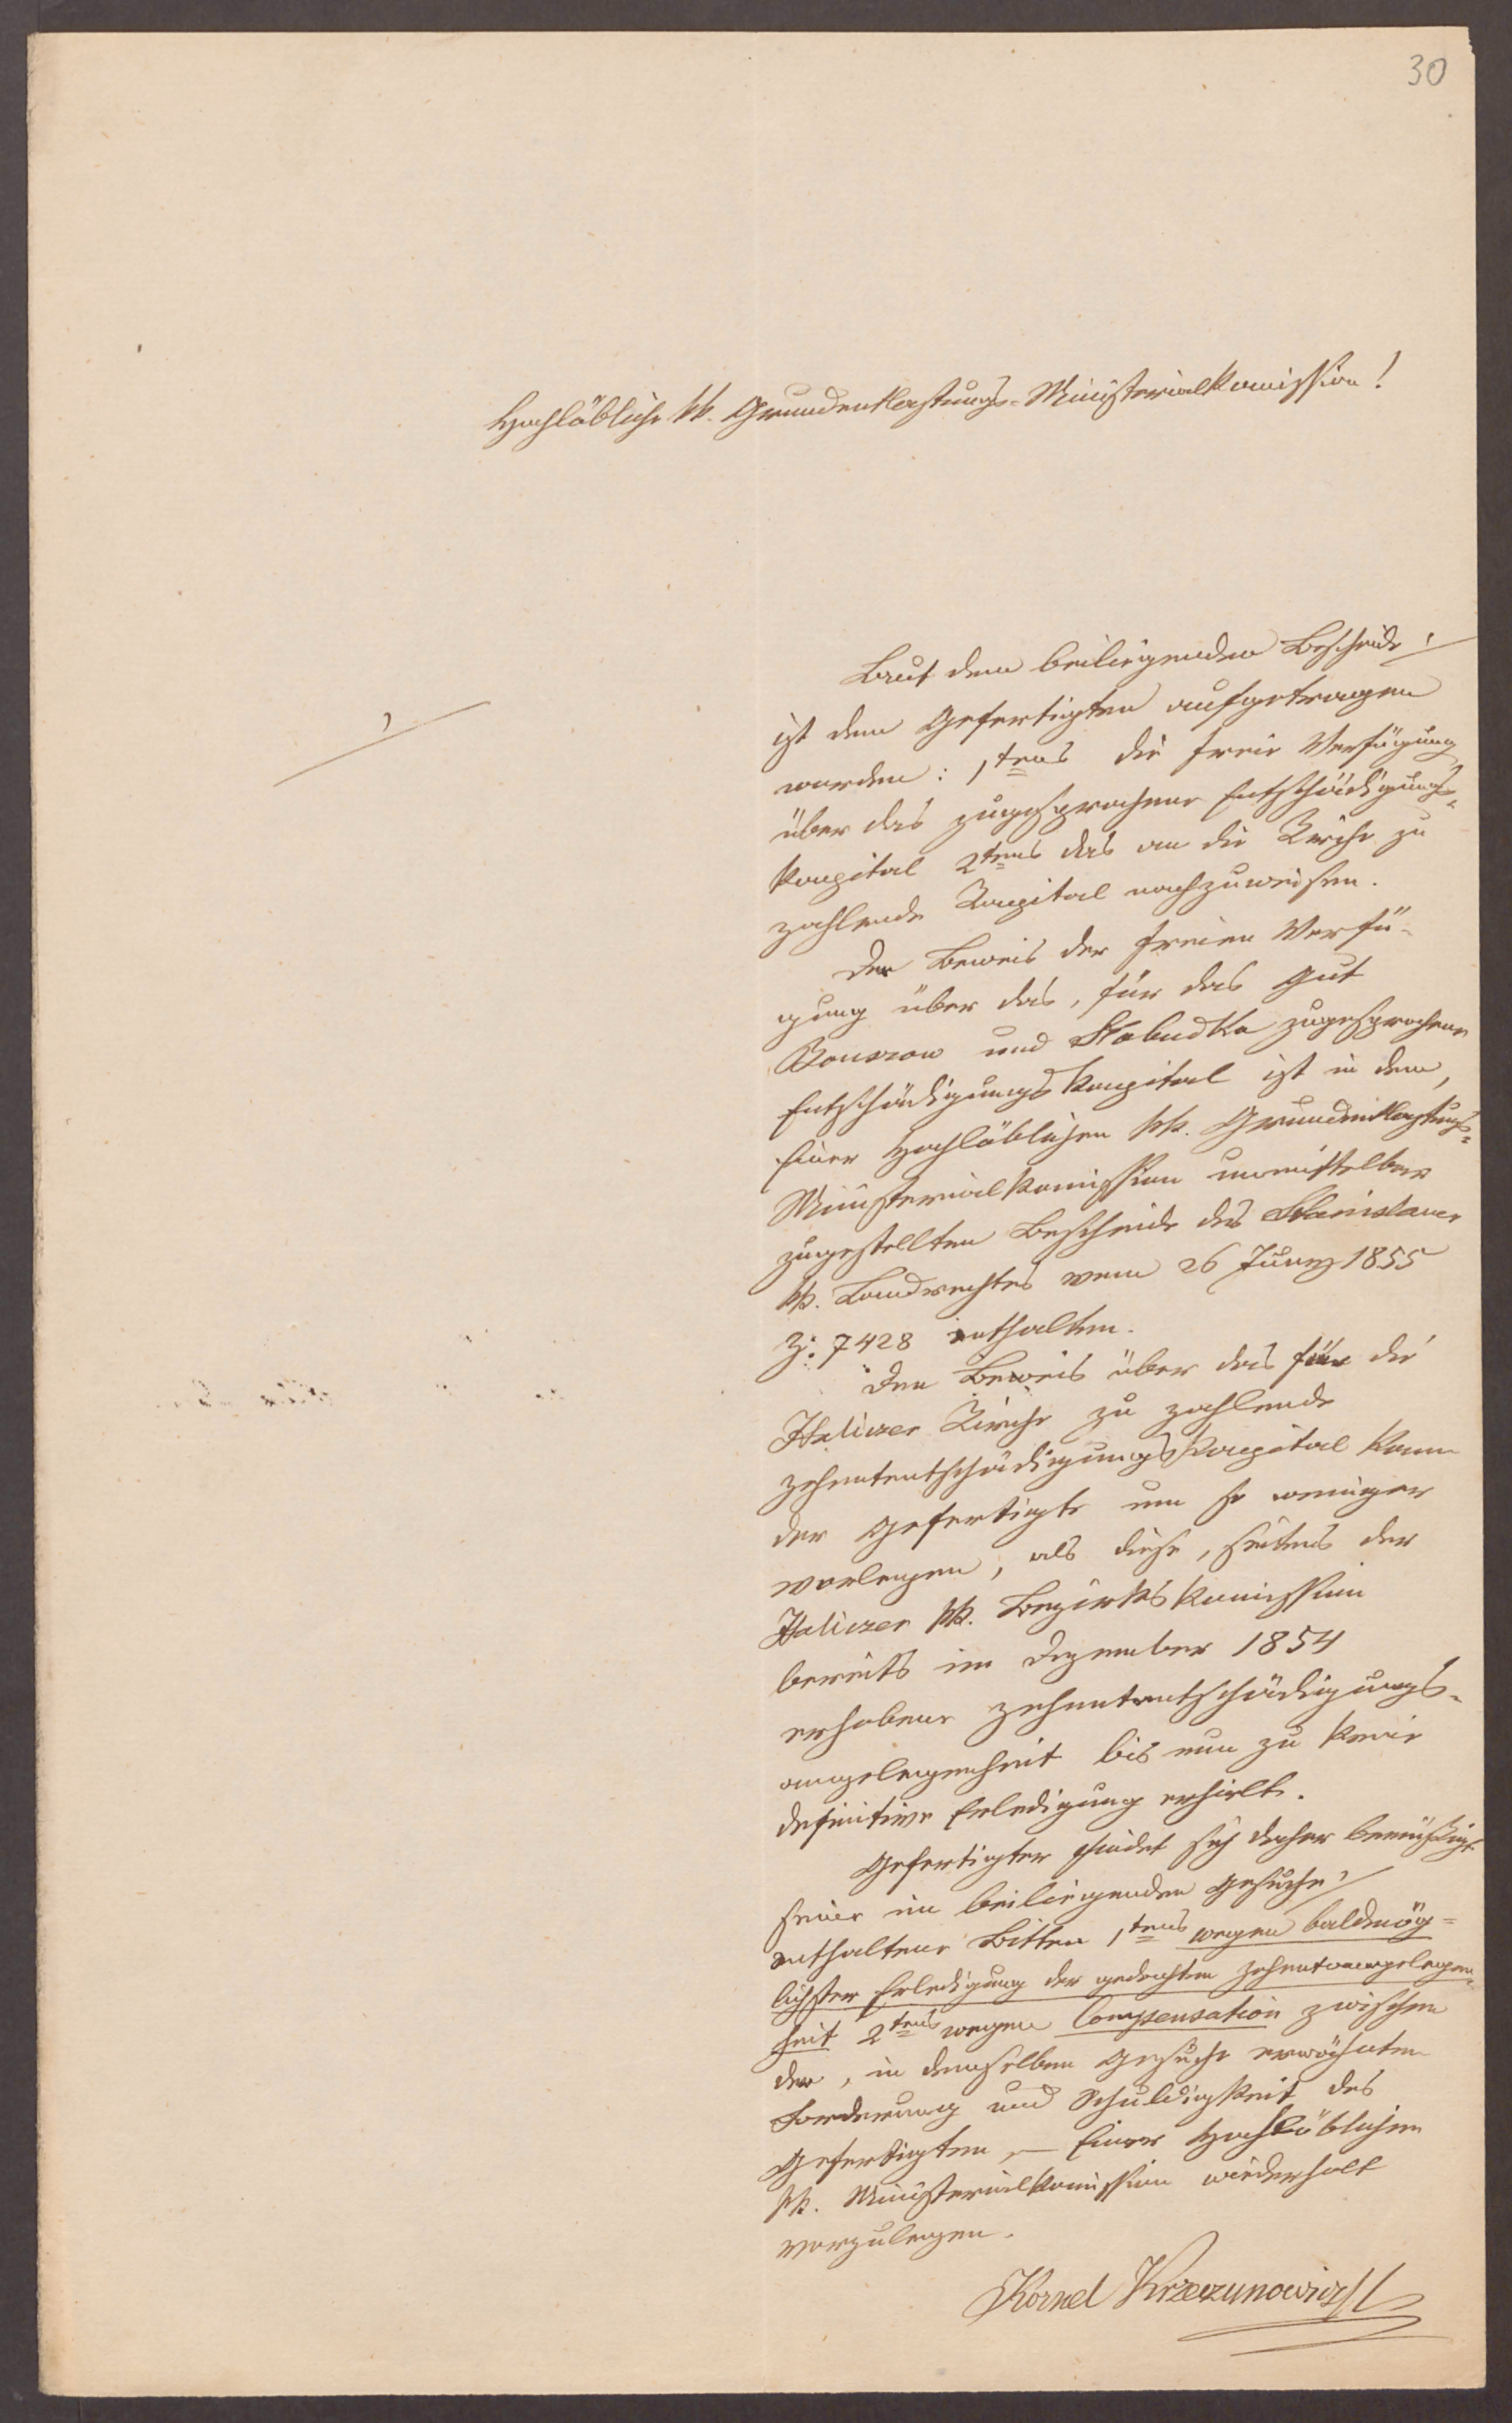 30
Hochlöbliche kk. Grundentlastungs-Ministerialkomission!
Laut dem beiliegenden Bescheide ./
ist dem Gefertigten aufgetragen
./
worden: 1tens die freie Verfügung
über das zugesprochene Entschädigungs-
kapital 2tens das an die Kirche zu
zahlende Kapital nachzuweisen.
Der Beweis der freien Verfü-
gung über das, für das Gut
Bouszow und Słobudka zugesprochene
Entschädigungskapital ist in dem,
Einer Hochlöblichen kk. Grundentlastungs-
Ministerialkomission unmittelbar
zugestellten Bescheide des Stanislauer
kk. Landrechtes vom 26 Juny 1855
Z: 7428 enthalten.
Den Beweis über das für die
Haliczer Kirche zu zahlende
Zehententschädigungskapital kann
der Gefertigte um so weniger
vorlegen, als diese, seitens der
Haliczer kk. Bezirkskomission
bereits im Dezember 1854
erhobene Zehententschädigungs-
angelegenheit bis nun zu keine
definitive Erledigung erhielt.
Gefertigter findet sich daher bemüßigt
seine im beiliegenden Gesuche ./
enthaltene Bitten 1tens wegen baldmög-
lichster Erledigung der gedachten Zehentangelegen-
heit 2tens wegen Compensation zwischen
der, in demselben Gesuche erwähnten
Forderung und Schuldigkeit des
Gefertigten, – Einer Hochlöblichen
kk. Ministerialkomission wiederholt
vorzulegen.
Kornel Krzeczunowicz